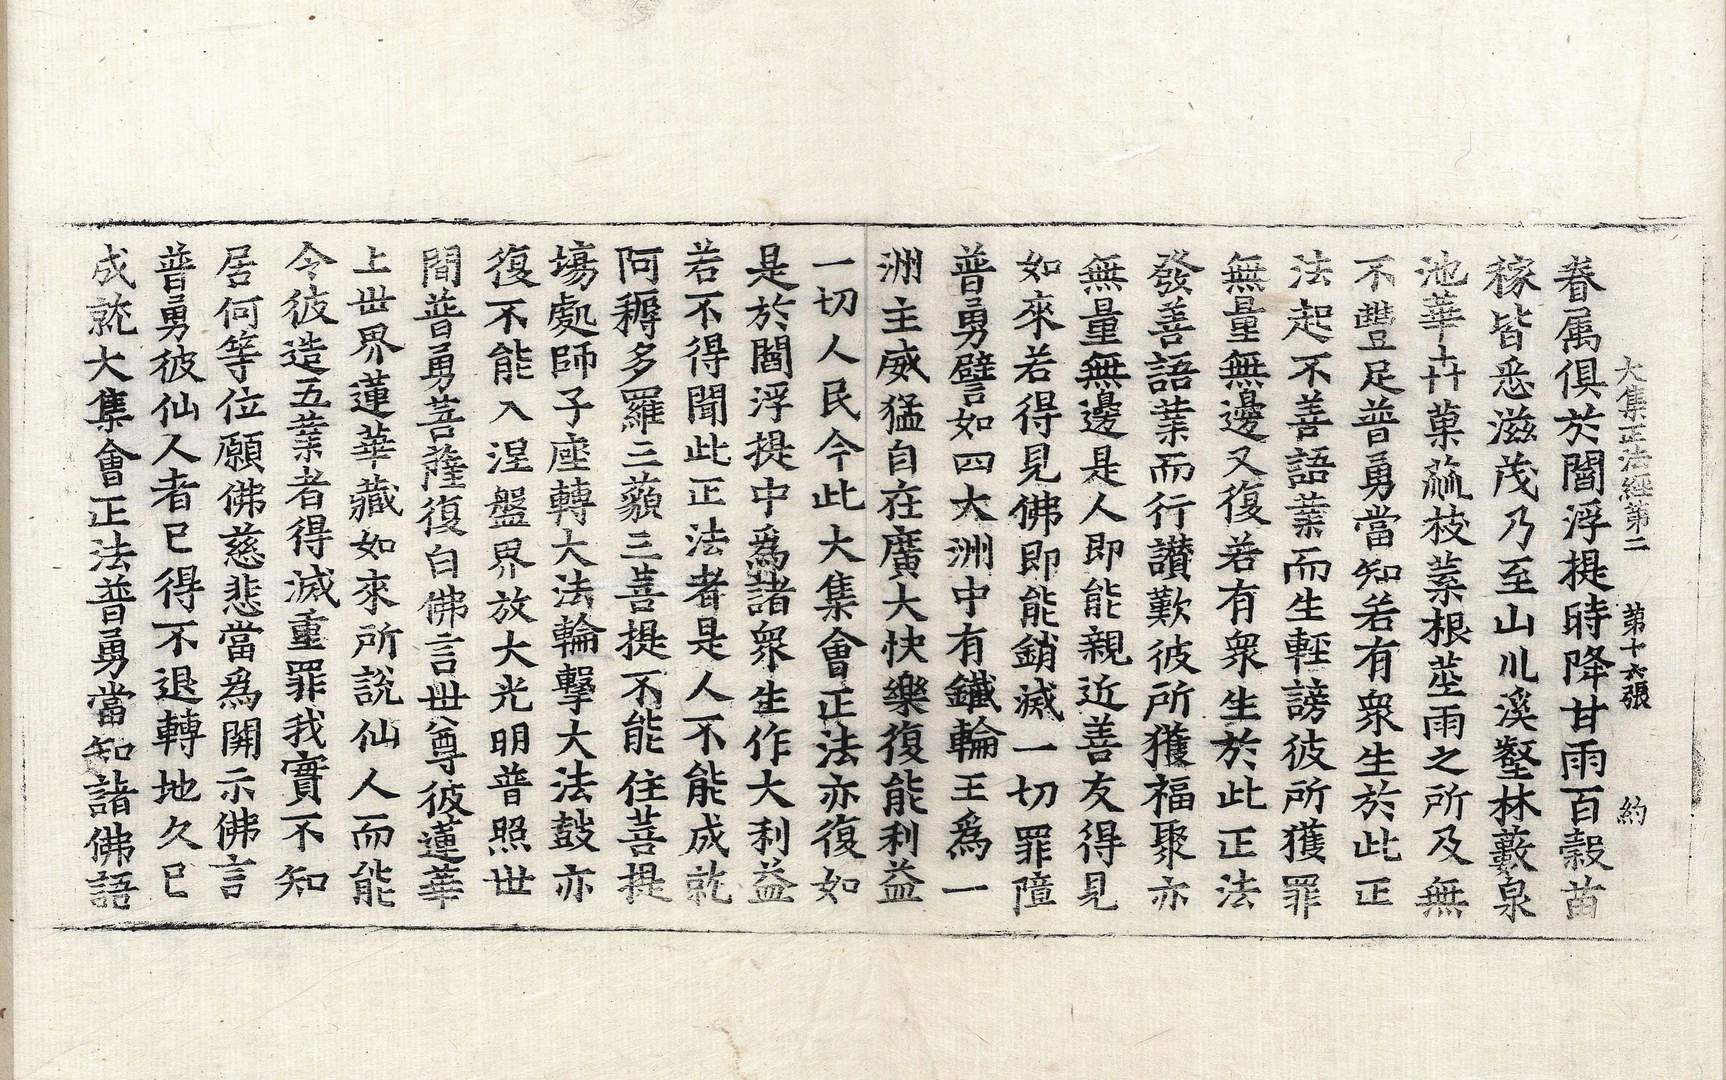 大集正法經第二　第十六張　約
眷属俱於閻浮提時降甘雨百穀苗
稼皆悉滋茂乃至山川溪壑林藪泉
池華卉菓蓏枝葉根莖雨之所及無
不豐足普勇當知若有衆生於此正
法起不善語業而生輕謗彼所獲罪
無量無邊又復若有衆生於此正法
發善語業而行讃歎彼所獲福聚亦
無量無邊是人即能親近善友得見
如來若得見佛即能銷滅一切罪障
普勇譬如四大洲中有鐵輪王爲一
洲主威猛自在廣大快樂復能利益
一切人民今此大集會正法亦復如
是於閻浮提中爲諸衆生作大利益
若不得聞此正法者是人不能成就
阿耨多羅三藐三菩提不能住菩提
場處師子座轉大法輪擊大法鼓亦
復不能入涅盤界放大光明普照世
間普勇菩薩復白佛言世尊彼蓮華
上世界蓮華藏如來所說仙人而能
令彼造五業者得滅重罪我實不知
居何等位願佛慈悲當爲開示佛言
普勇彼仙人者已得不退轉地久已
成就大集會正法普勇當知諸佛語